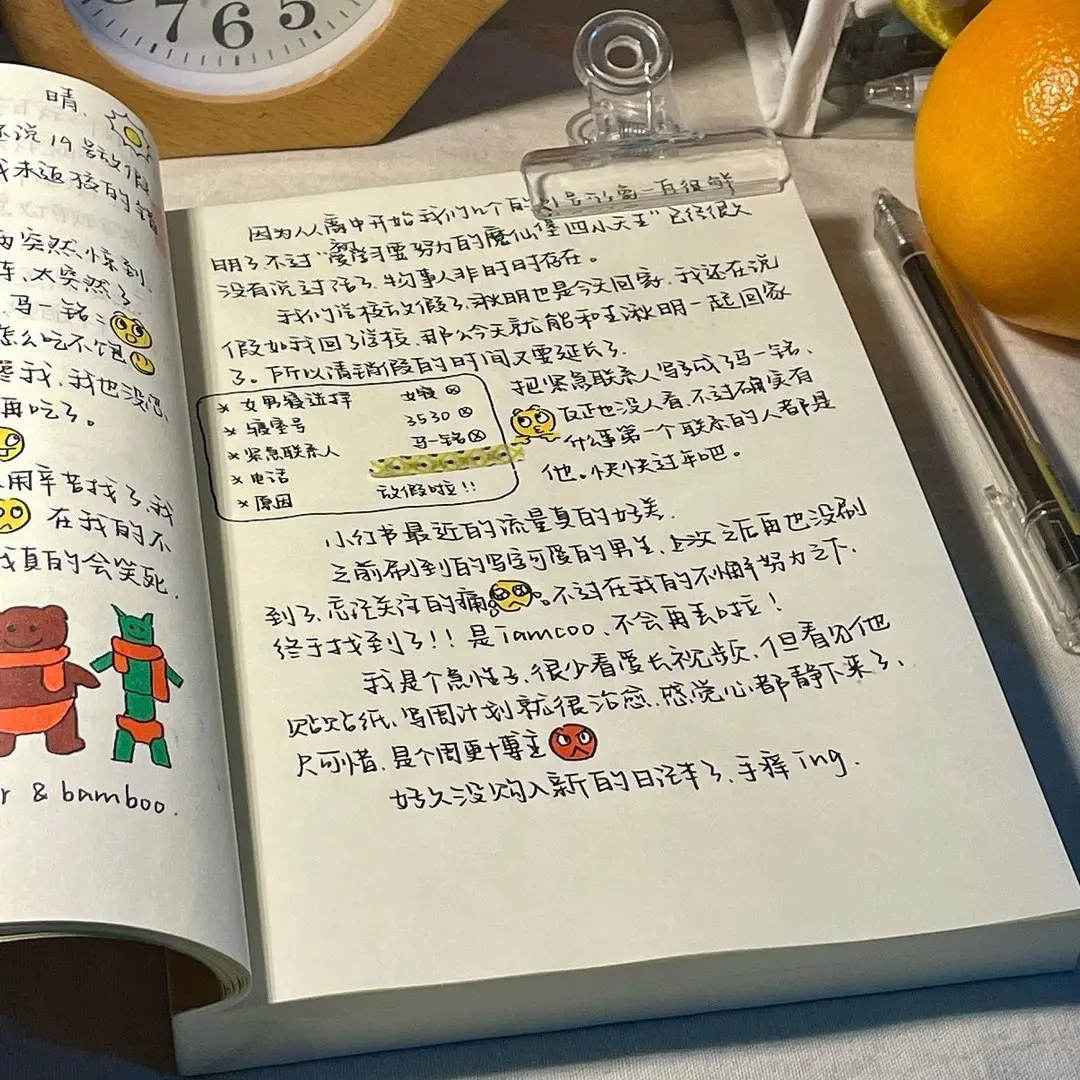 7 6 5
晴.
还说19号放假
我未返孩的错
再突然.惊到
车、太突然了
马一铭:
怎么吃不饱
我.我也没吃
再吃了。
用辛苦找了.我
在我的不
我真的会笑死.
r & bamboo.
因为从高中开始我们几个的 一直很鲜
明了不过 要努力的魔仙堡四小天王"已经很久
没有说过话了.物事人非时时存在。
我们学校放假了.湫明也是今天回家.我还在说
假如我回了学校.那么今天就能和王湫明一起回家
了。所以清销假的时间又要延长了.
× 女男寝选择 女寝 ⊗
× 寝室号 3530 ⊗
× 紧急联系人 马一铭 ⊗
× 电话
× 原因 放假啦!!
把紧急联系人写成了马一铭、
反正也没人看.不过确实有
什么事第一个联系的人都是
他。快快过年吧。
小红书最近的流量真的好差.
之前刷到的写字可爱的男生.上次之后再也没刷
到了.忘记关注的痛 。不过在我的不懈努力之下.
终于找到了!!是iamcoo、不会再丢啦!
我是个急性子.很少看爱长视频.但看见他
贴贴纸、写周计划就很治愈.感觉心都静下来了、
只可惜.是个周更博主
好久没购入新的日记本了.手痒ing.